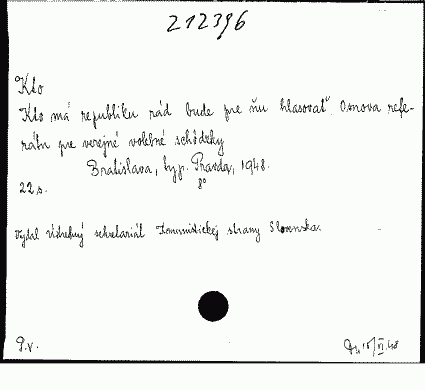 212396
Kto
Kto má republiku rád bude pre ňu hlasovať. Osnova refe-
rátu pre verejné volebné schôdzky
Bratislava, typ. Pravda, 1948.
22 s. 8°
Vydal Ústredný sekretariát Komunistickej strany Slovenska.
P.v.